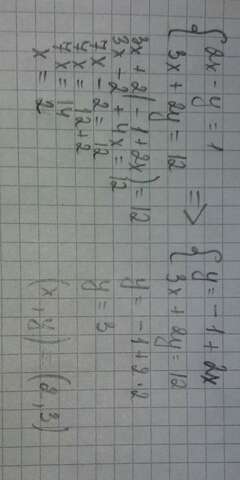 { 2x - y = 1
3x + 2y = 12
=>
{ y = -1 + 2x
3x + 2y = 12
3x + 2(-1 + 2x) = 12
3x - 2 + 4x = 12
7x - 2 = 12
7x = 12 + 2
7x = 14
x = 2
y = -1 + 2·2
y = 3
(x + y) = (2,3)